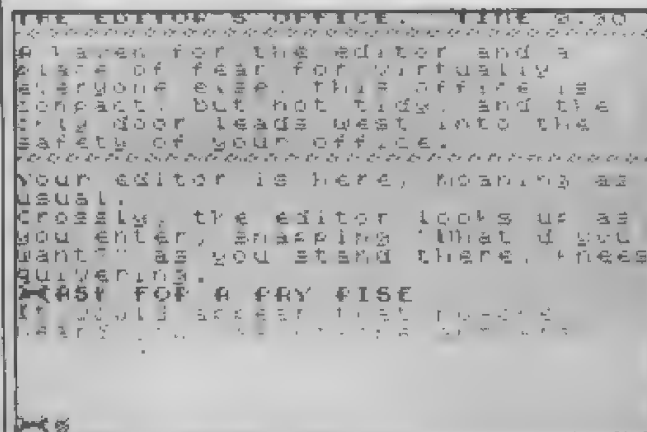 THE EDITOR'S OFFICE. TIME 9.30
A haven for the editor and a
place of fear for virtually
everyone else, this office is
compact, but not tidy, and the
only door leads west into the
safety of your office.
Your editor is here, moaning as
usual.
Crossly, the editor looks up as
you enter, snapping "What d'you
want" as you stand there, knees
quivering.
ASK FOR A PAY RISE
It would appear that no-one